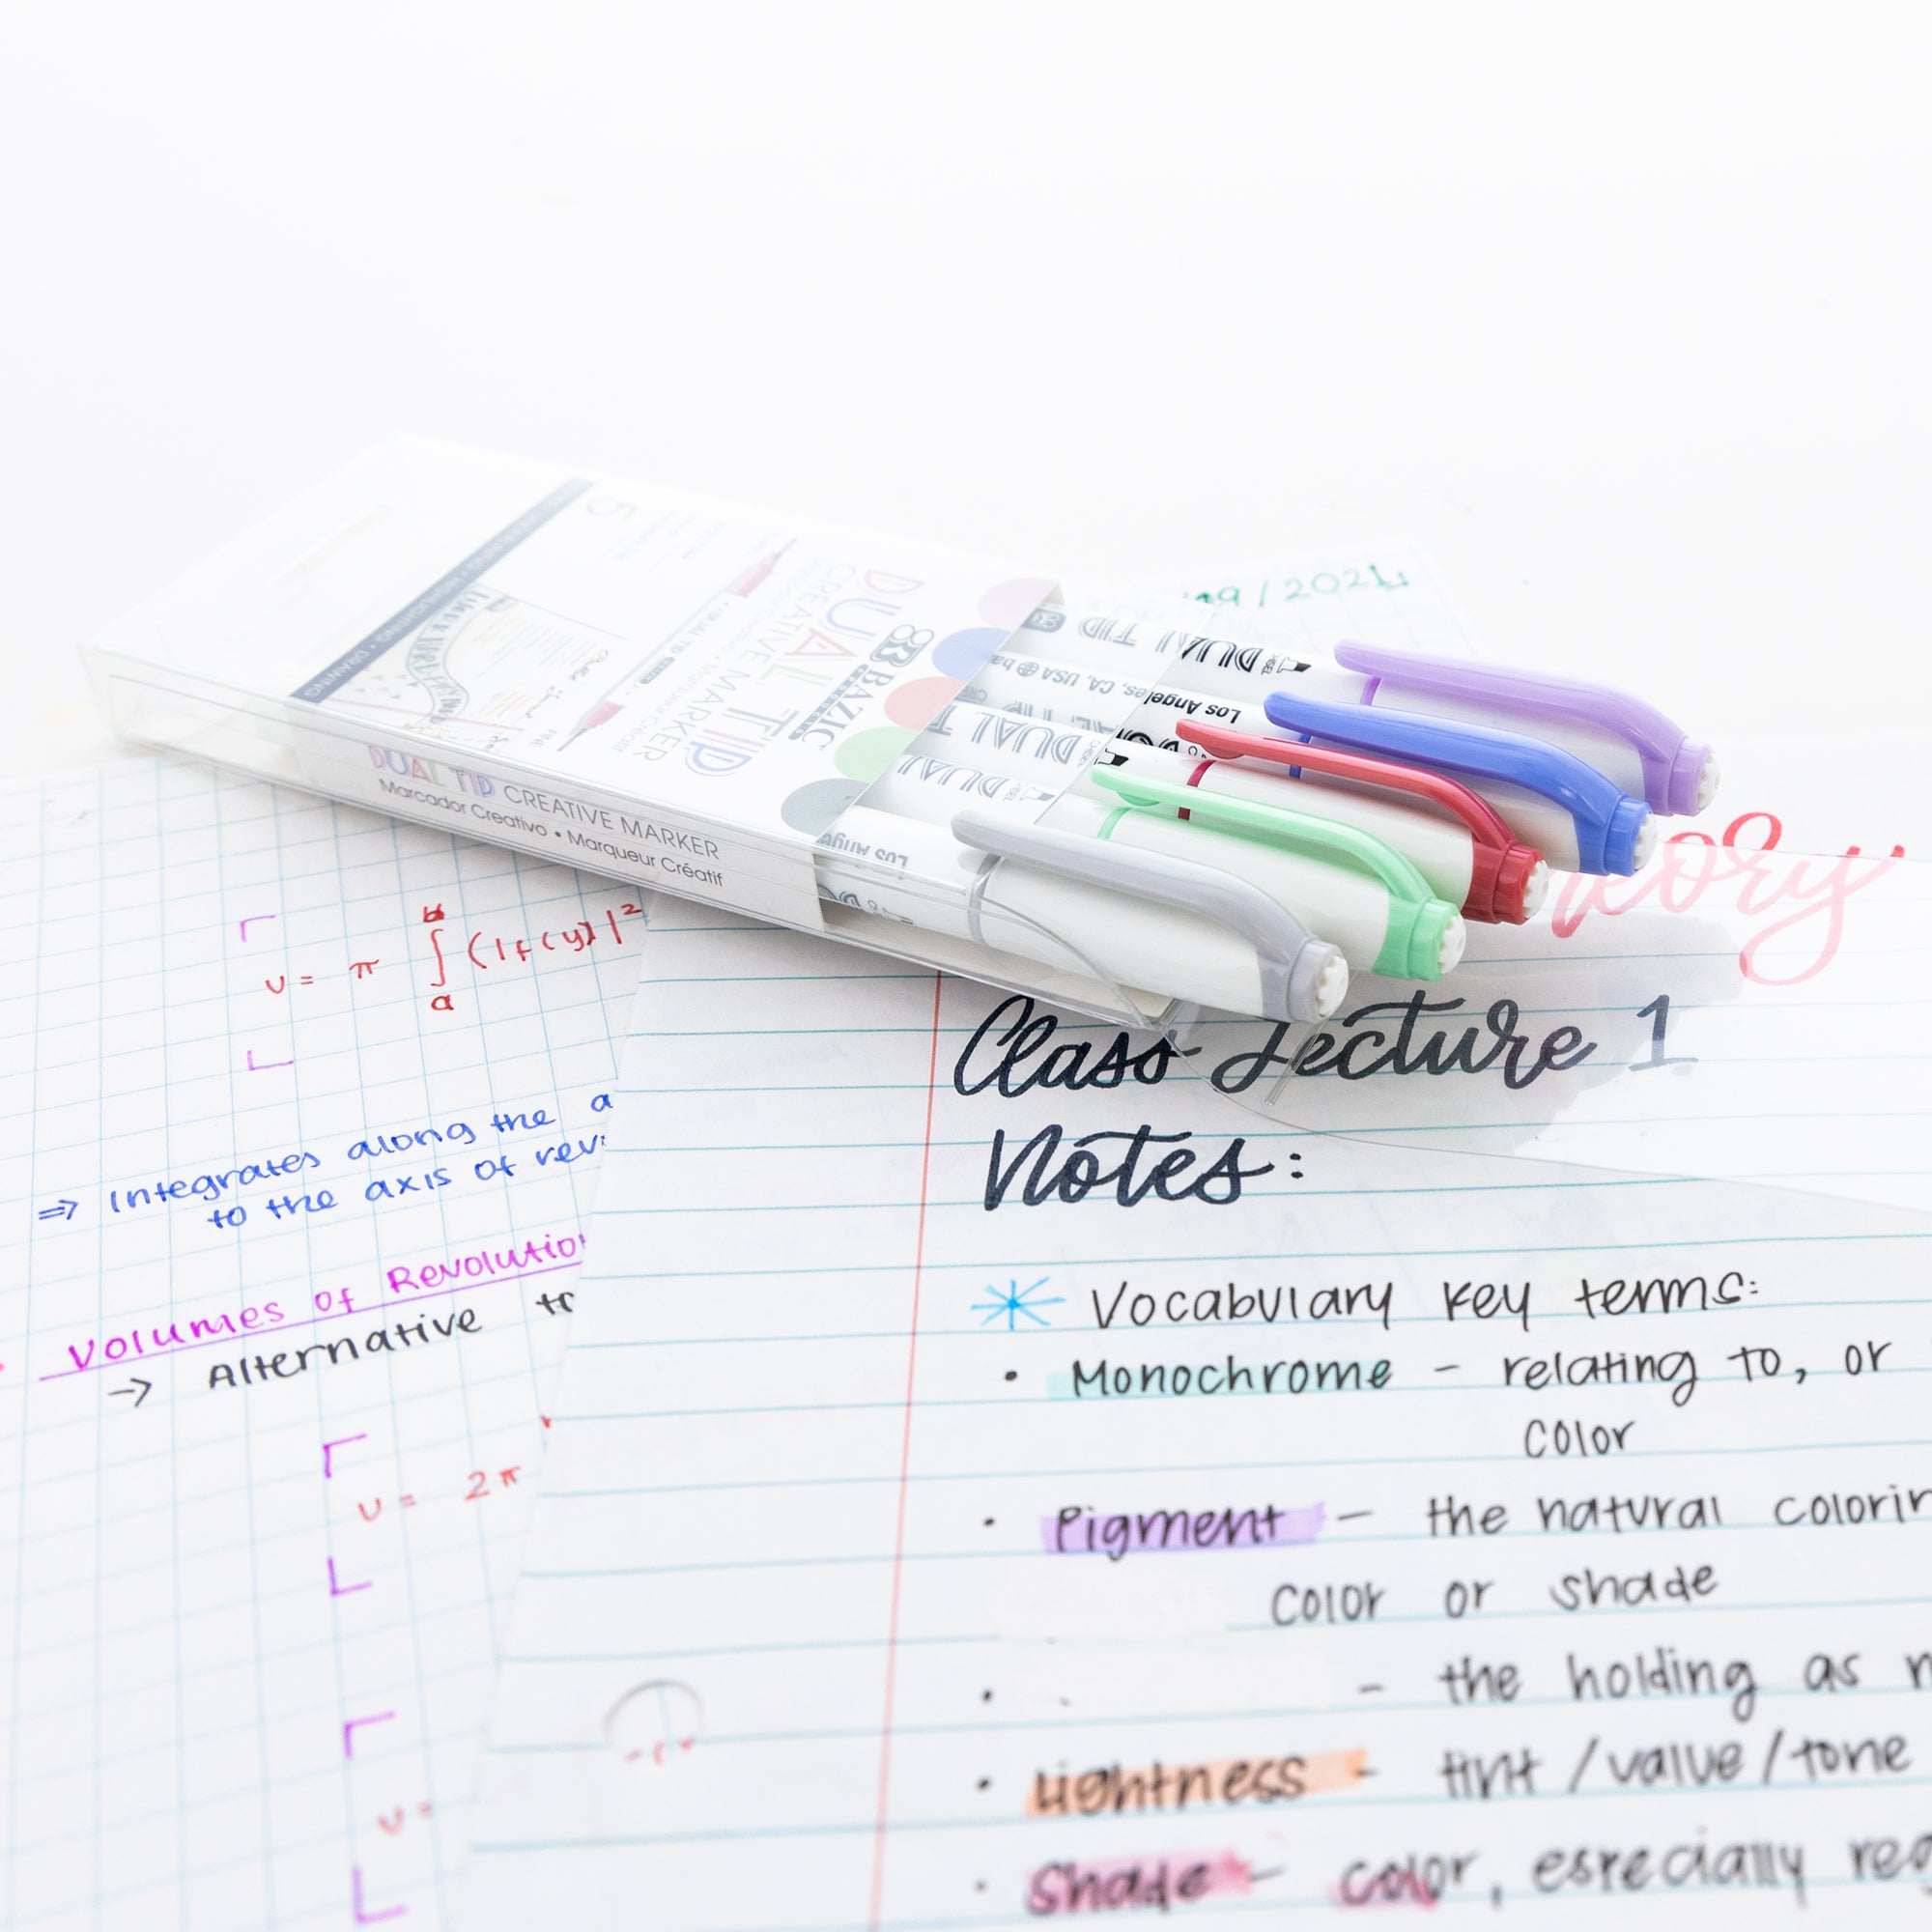 DUAL TIP
CREATIVE MARKER
BAZIC
5
FINE
DUAL TIP CREATIVE MARKER
Marcador Creativo • Marqueur Créatif
DUAL TIP
Los Angeles, CA, USA
DUAL
DUAL
Los Ange
09/2021
eory
Class Lecture 1
Notes:
Vocabulary key terms:
• Monochrome - relating to, or
color
• Pigment - the natural colorin
color or shade
• - the holding as
• Lightness - tint/value/tone
• Shade - color, especially reg
v = π ∫ (|f(y)|²
b
a
⇒ Integrates along the a
to the axis of rev
Volumes of Revolution
→ Alternative to
v = 2π
v =